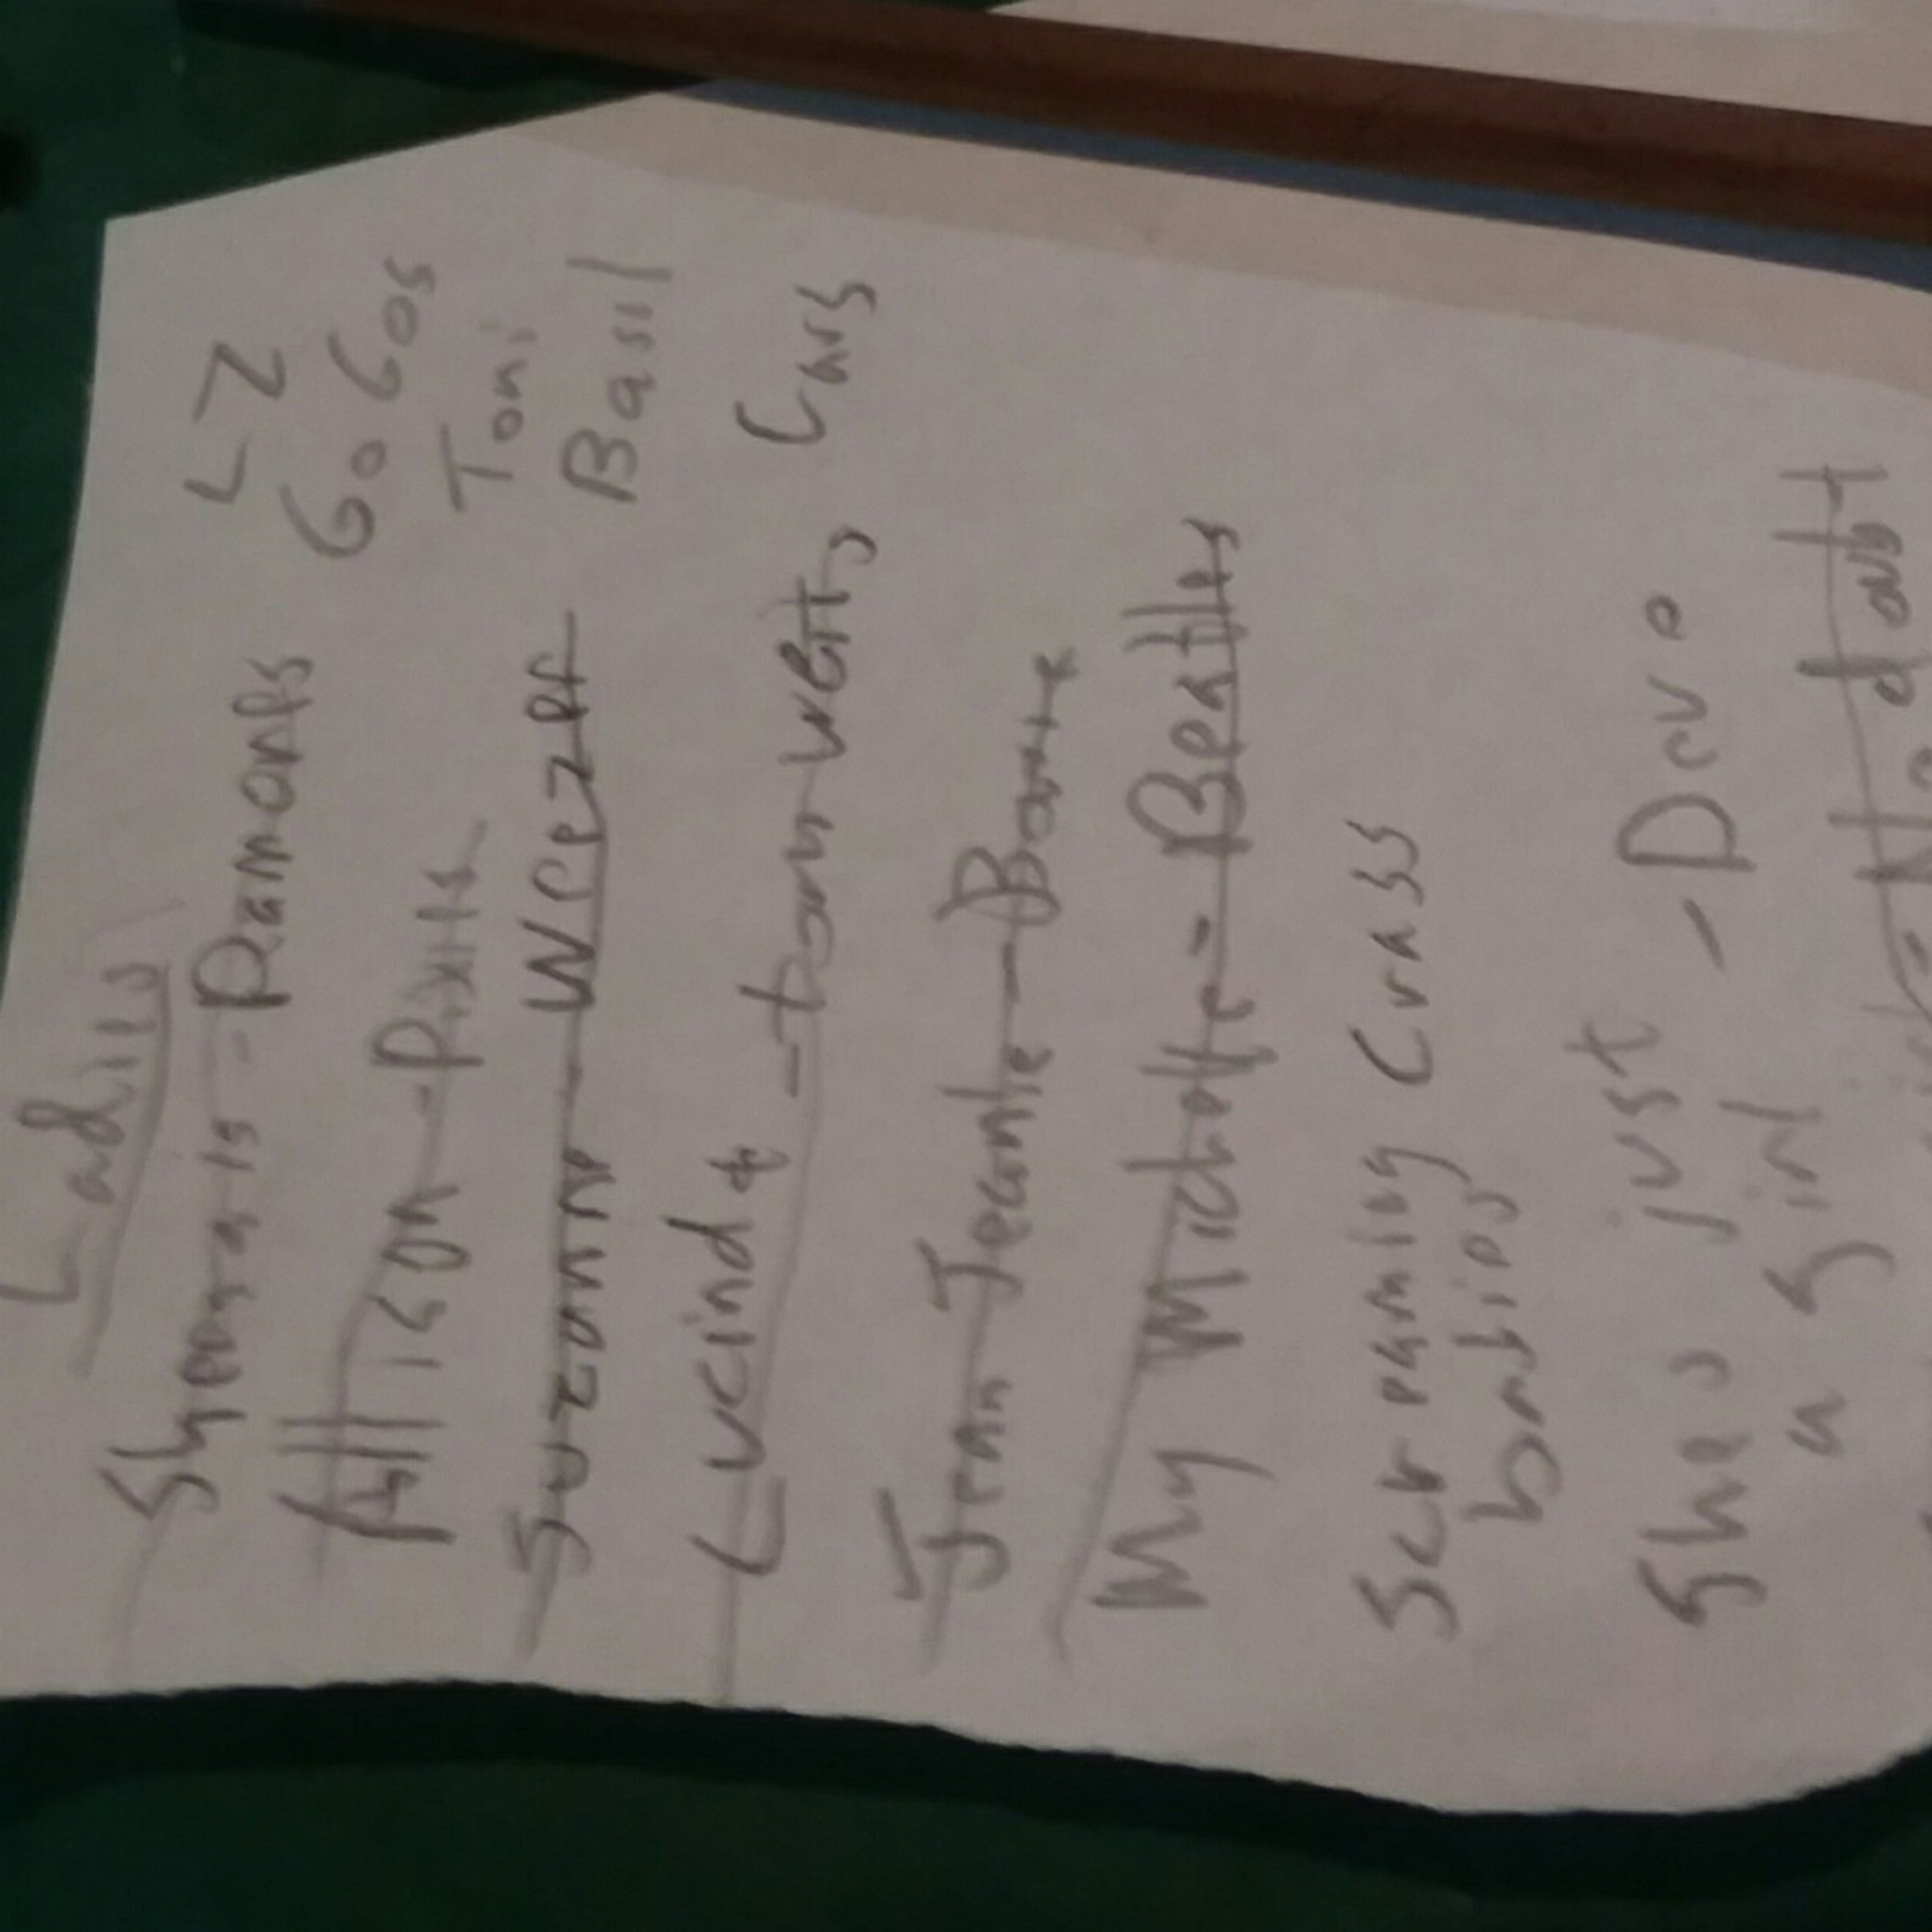 Ladies
Sheena is - Ramones
LZ
Allison - Pixies
Go Gos
Toni
Suzanne - Weezer
Basil
Lucinda - tom waits
Cars
Jean Jeanie - Bowie
My Michelle - Beatles
Screaming Crass
babies
Shes just - Devo
a girl
No doubt